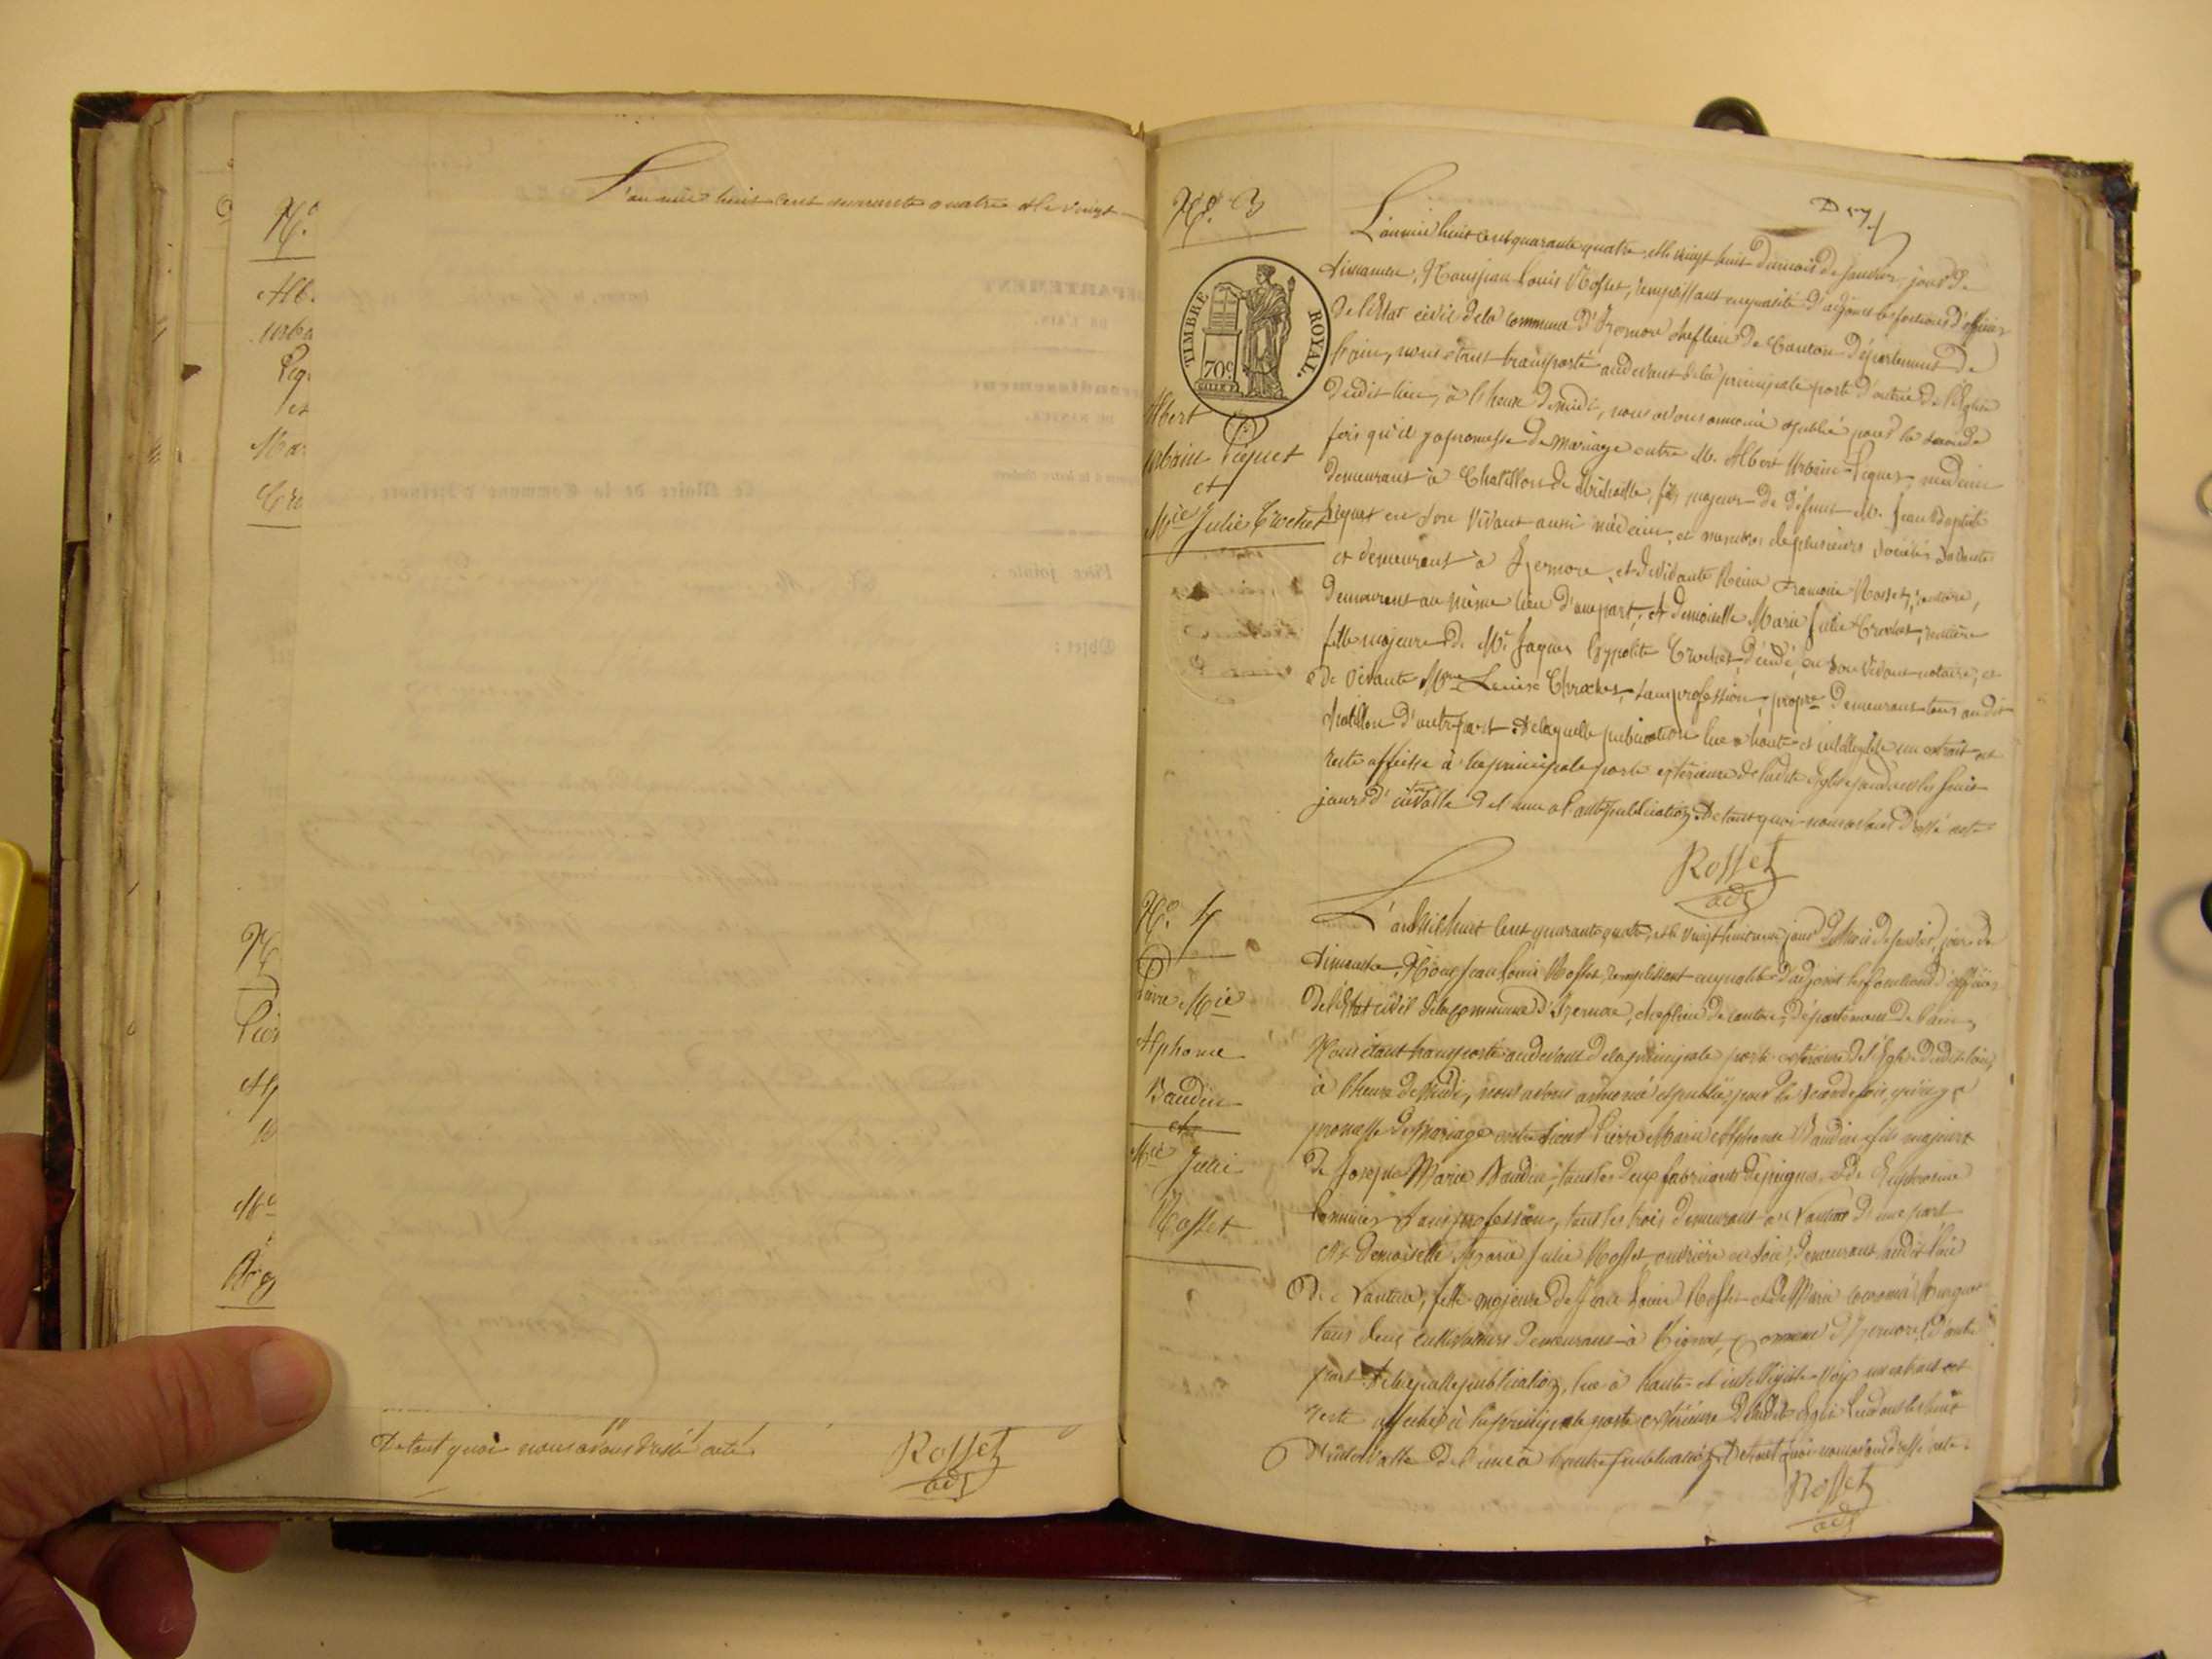 L'an mil huit cent quarante quatre et le vingt
N°
Alb.
urba
Piq.
et
Mar
Cro
N
Pier
Alp
Ro
De tout quoi nous avons dressé acte.
Rosset
adj
N°. 3
TIMBRE ROYAL.
70c
Albert
Urbain Piquet
et
Mie Julie Crochet
L'an mil huit cent quarante quatre, et le vingt huit du mois de janvier, jour de
dimanche, Nous jean Louis Rosset, remplissant en qualité d'adjoint les fonctions d'officier
de l'Etat civil de la commune d'Izernore chef lieu de Canton département de
l'ain, nous étant transporté au devant de la principale porte d'entrée de l'Eglise
dudit lieu, à l'heure de midi, nous avons annoncé et publié pour la seconde
fois qu'il y a promesse de mariage entre Mr. Albert Urbain Piquet, medecin
demeurant à Chatillon de Michaille, fils majeur de défunt Mr. Jean Baptiste
Piquet en son vivant aussi médecin, et membre de plusieurs sociétés savantes
et demeurant à Izernore, et de vivante Reine Françoise Rosset, rentière,
demeurant au même lieu d'une part; et demoiselle Marie Julie Crochet, rentière
fille majeure de Mr Jaques hyppolite Crochet, décédé, en son vivant notaire, et
de vivante Mme Louise Chrochet, sans profession, propre demeurant tous au dit
chatillon d'autre part de laquelle publication lue à haute et intelligible un extrait est
resté affiché à la principale porte extérieure de ladite Eglise pendant les huit
jours d'intervalle de l'une à l'autre publication. De tout quoi nous avons dressé acte
Rosset
adj
N°. 4
Pierre Mie
Alphonse
Baudin
et
Mie Julie
Rosset
L'an Mil huit Cent quarante quatre, et le vingt huitieme jour du Mois de janvier, jour de
dimanche, Nous Jean Louis Rosset, remplissant en qualité d'adjoint les fonctions d'officier
de l'Etat civil de la commune d'Izernore, chef lieu de canton, département de l'ain,
Nous étant transporté au devant de la principale porte extérieure de l'Eglise dudit lieu,
à l'heure de Midi, nous avons annoncé et publié pour la seconde fois, qu'il y a
promesse de Mariage entre sieur Pierre Marie Alphonse Baudin fils majeur
de Joseph Marie Baudin, tous les deux fabricants de peignes, et de Euphrosine
sans profession, tous les trois demeurant à Nantua d'une part
Et Demoiselle Marie Julie Rosset, ouvrière en soie, demeurant audit lieu
de Nantua, fille majeure de Jean Louis Rosset et de Marie
tous deux cultivateurs demeurant à Tignat, Commune d'Izernore, d'autre
part de laquelle publication, lue à haute et intelligible voix un extrait est
resté affiché à la principale porte extérieure de ladite Eglise pendant les huit
d'intervalle de l'une à l'autre publication. De tout quoi nous avons dressé acte.
Rosset
adj